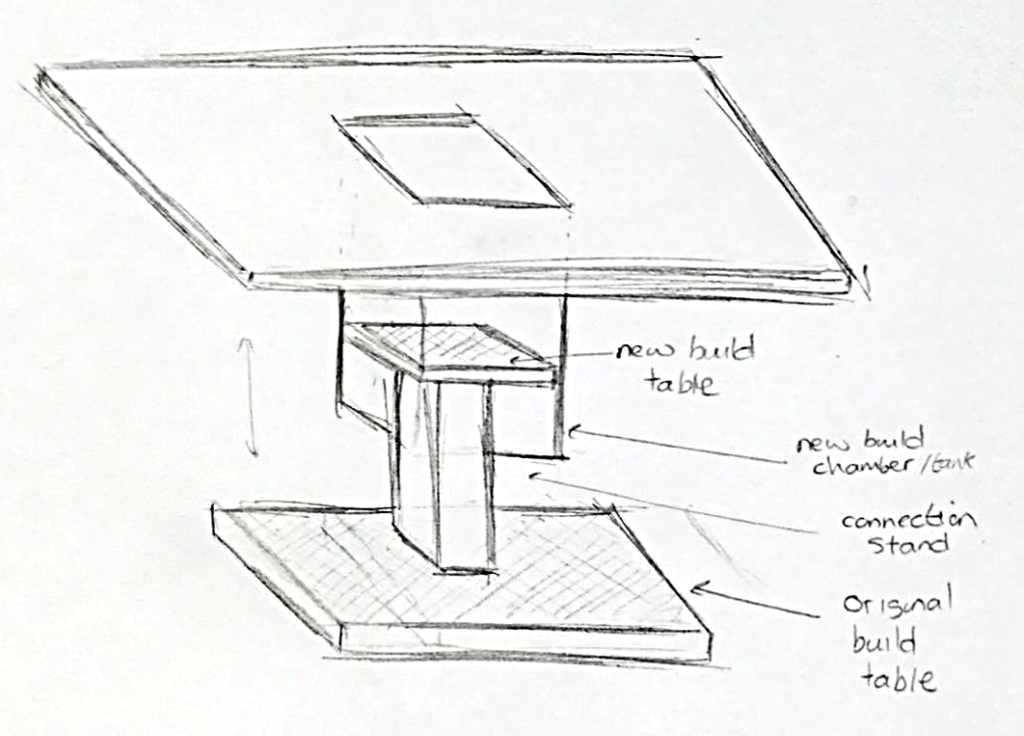 new build
table
new build
chamber/tank
connection
stand
Original
build
table